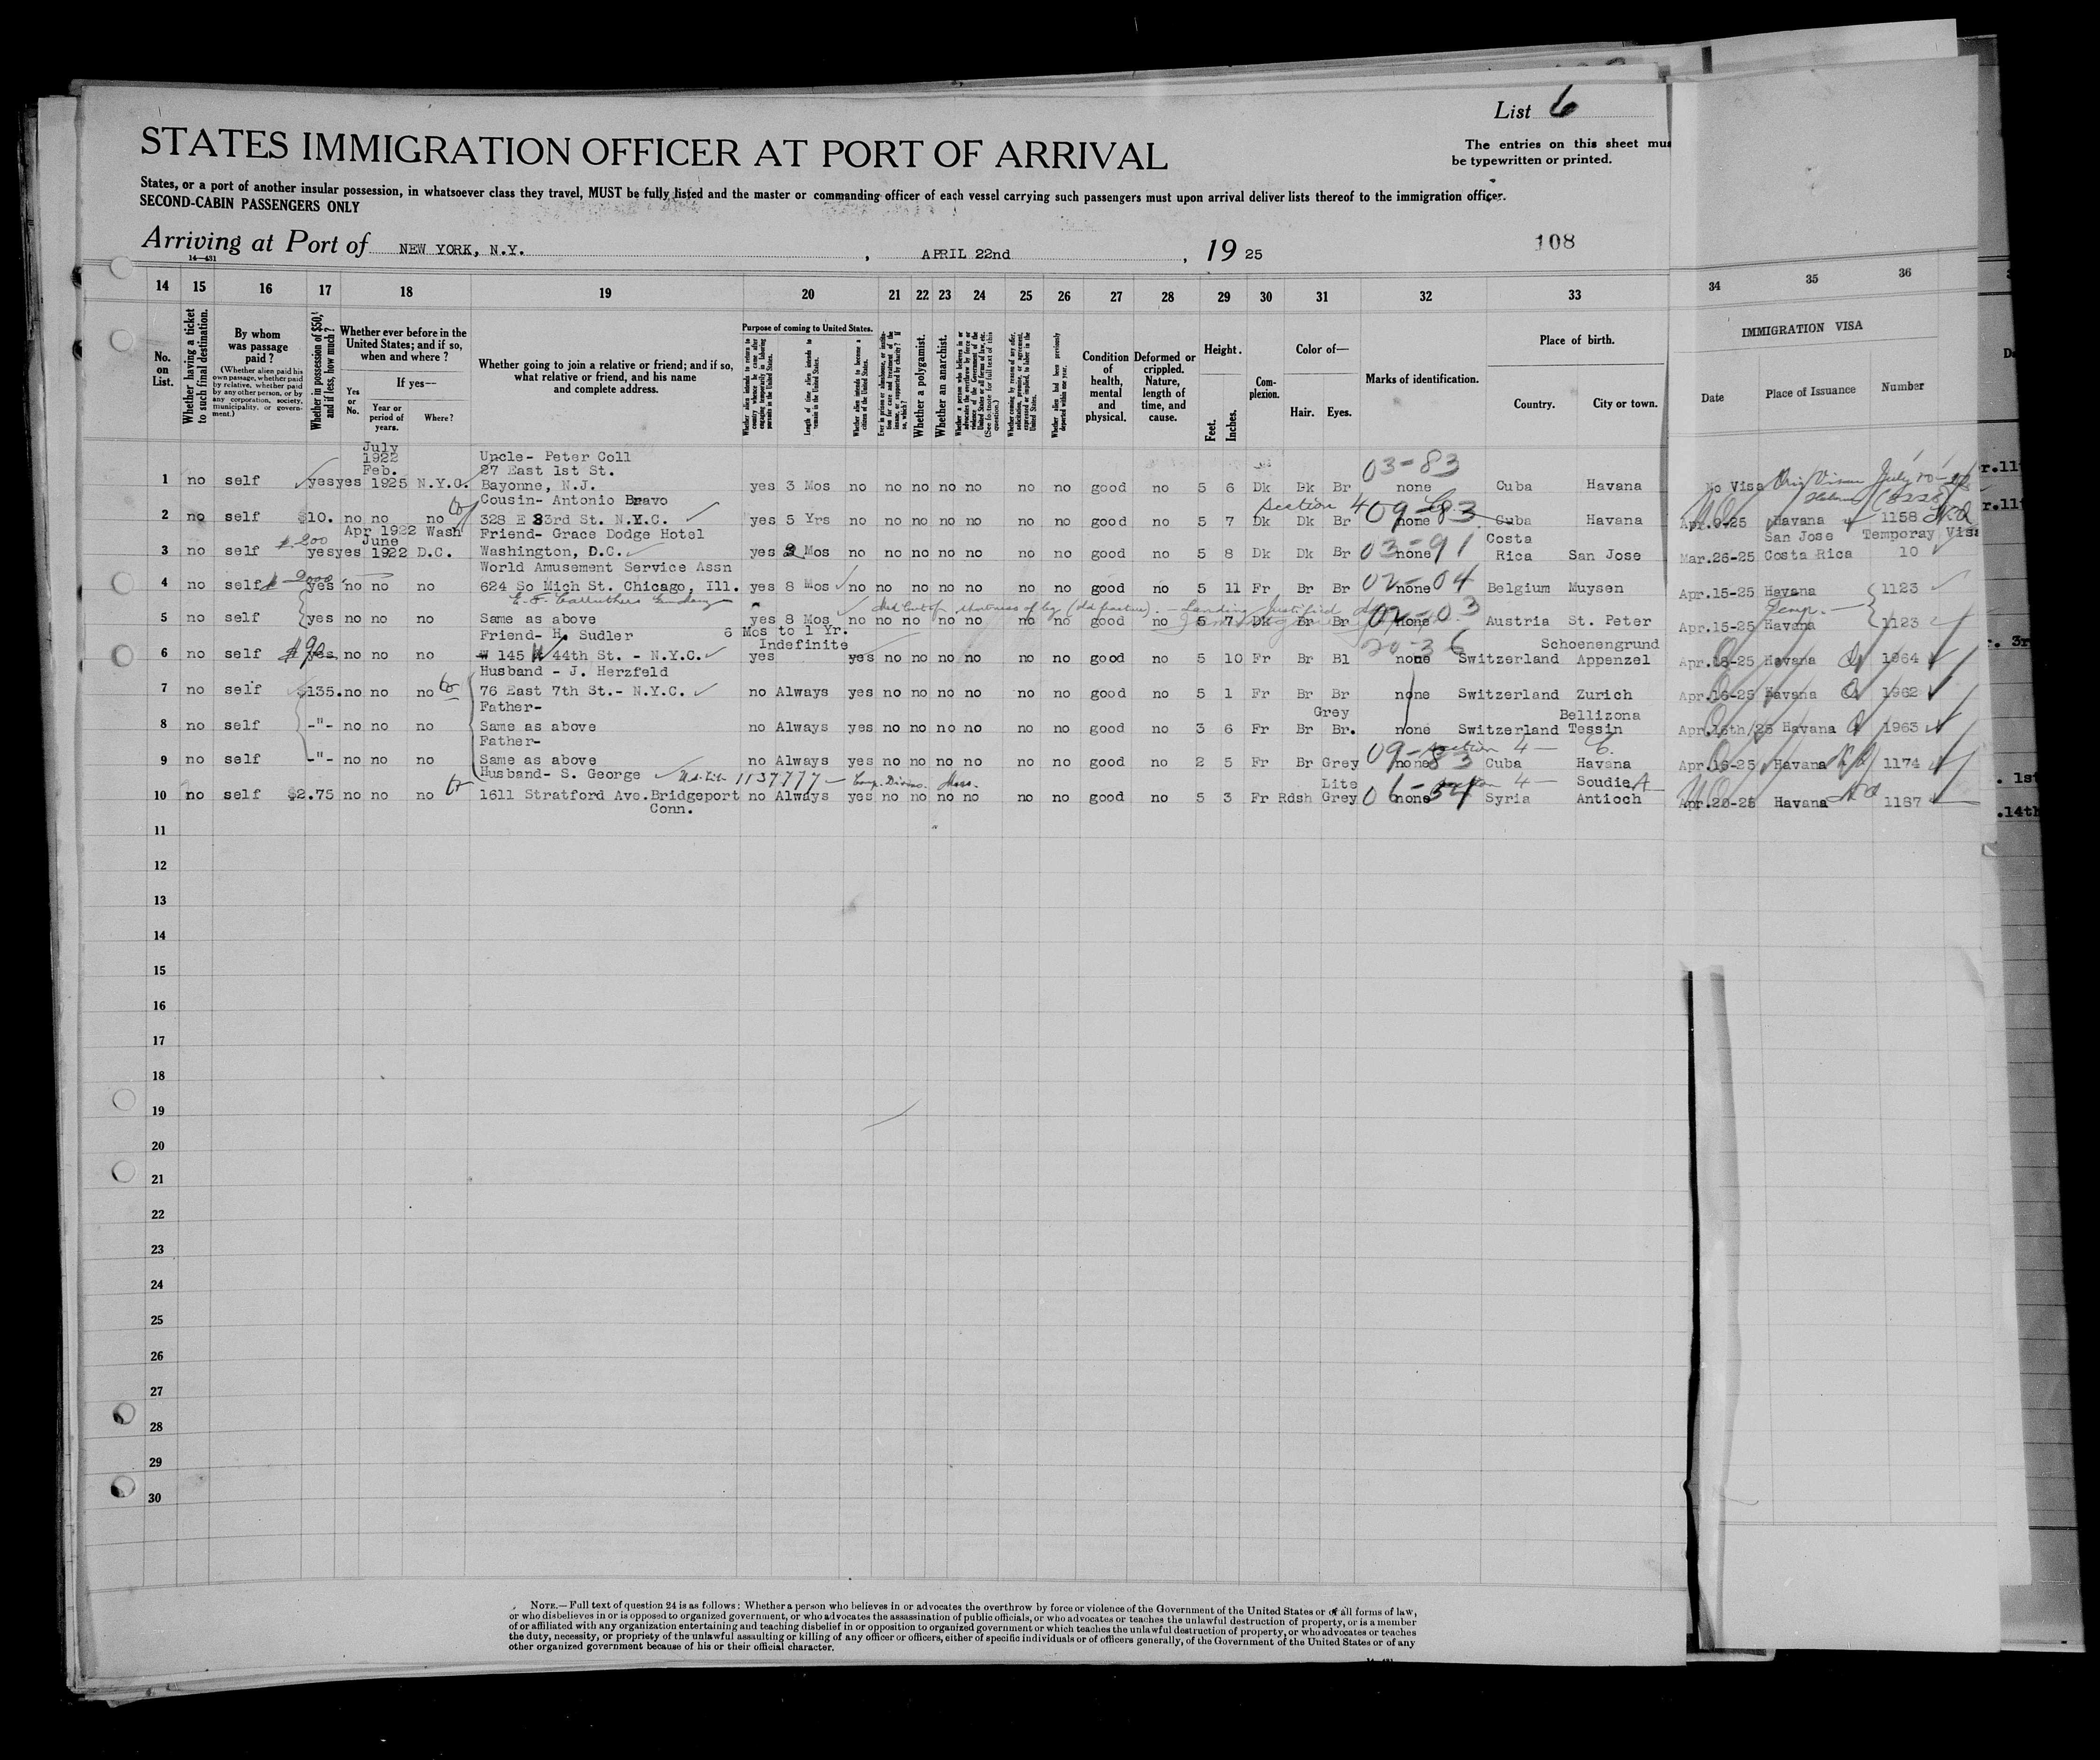 List 6
STATES IMMIGRATION OFFICER AT PORT OF ARRIVAL
The entries on this sheet mus
be typewritten or printed.
States, or a port of another insular possession, in whatsoever class they travel, MUST be fully listed and the master or commanding officer of each vessel carrying such passengers must upon arrival deliver lists thereof to the immigration officer.
SECOND-CABIN PASSENGERS ONLY
Arriving at Port of NEW YORK, N.Y. , APRIL 22nd , 19 25
108
14—431
14 15 16 17 18 19 20 21 22 23 24 25 26 27 28 29 30 31 32 33 34 35 36
No. on List.
Whether having a ticket to such final destination.
By whom was passage paid?
(Whether alien paid his own passage, whether paid by relative, whether paid by any other person, or by any corporation, society, municipality, or government.)
Whether in possession of $50, and if less, how much?
Whether ever before in the United States; and if so, when and where?
Yes or No.
If yes—
Year or period of years.
Where?
Whether going to join a relative or friend; and if so, what relative or friend, and his name and complete address.
Purpose of coming to United States.
Whether alien intends to return to country whence he came after engaging temporarily in laboring pursuits in the United States.
Length of time alien intends to remain in the United States.
Whether alien intends to become a citizen of the United States.
Whether a polygamist.
Whether an anarchist.
Condition of health, mental and physical.
Deformed or crippled. Nature, length of time, and cause.
Height.
Feet.
Inches.
Complexion.
Color of—
Hair.
Eyes.
Marks of identification.
Place of birth.
Country.
City or town.
IMMIGRATION VISA
Date
Place of Issuance
Number
July
1922 Uncle- Peter Coll
Feb. 27 East 1st St. 03-83
1 no self yes yes 1925 N.Y.C. Bayonne, N.J. yes 3 Mos no no no no no no no good no 5 6 Dk Dk Br none Cuba Havana No Visa
Cousin- Antonio Bravo section 4
2 no self $10. no no no 328 E 83rd St. N.Y.C. yes 5 Yrs no no no no no no no good no 5 7 Dk Dk Br none 09-83 Cuba Havana Apr.9-25 Havana 1158
Apr 1922 Wash Friend- Grace Dodge Hotel Costa San Jose Temporay Visa
June
3 no self $200 yes yes 1922 D.C. Washington, D.C. yes 2 Mos no no no no no no no good no 5 8 Dk Dk Br none 03-91 Rica San Jose Mar.26-25 Costa Rica 10
World Amusement Service Assn
4 no self $2000 yes no no no 624 So Mich St. Chicago, Ill. yes 8 Mos no no no no no no no good no 5 11 Fr Br Br none 02-04 Belgium Muysen Apr.15-25 Havana 1123
Med Cert of shortness of leg (old fracture). — Landing justified
5 no self yes no no no Same as above yes 8 Mos no no no no no no no good no 5 7 Dk Br Br none 02-03 Austria St. Peter Apr.15-25 Havana Temp. 1123
Friend- H. Sudler 6 Mos to 1 Yr. 20-36
Indefinite Schoenengrund
6 no self $90 yes no no no W 145 W 44th St. - N.Y.C. yes yes no no no no no no good no 5 10 Fr Br Bl none Switzerland Appenzel Apr.16-25 Havana 1964
Husband - J. Herzfeld
7 no self $135. no no no 76 East 7th St.- N.Y.C. no Always yes no no no no no no good no 5 1 Fr Br Br none Switzerland Zurich Apr.16-25 Havana 1962
Father- Grey Bellizona
8 no self -"- no no no Same as above no Always yes no no no no no no good no 3 6 Fr Br Br. none Switzerland Tessin Apr.16th/25 Havana 1963
Father- section 4 —
9 no self -"- no no no Same as above no Always yes no no no no no no good no 2 5 Fr Br Grey none 09-83 Cuba Havana Apr.16-25 Havana 1174
Husband- S. George 1137777 — Lite section 4 — Soudie
10 no self $2.75 no no no 1611 Stratford Ave. Bridgeport no Always yes no no no no no no good no 5 3 Fr Rdsh Grey none Syria Antioch Apr.20-25 Havana 1187
Conn.
11
12
13
14
15
16
17
18
19
20
21
22
23
24
25
26
27
28
29
30
NOTE.—Full text of question 24 is as follows: Whether a person who believes in or advocates the overthrow by force or violence of the Government of the United States or of all forms of law,
or who disbelieves in or is opposed to organized government, or who advocates the assassination of public officials, or who advocates or teaches the unlawful destruction of property, or is a member
of or affiliated with any organization entertaining and teaching disbelief in or opposition to organized government or which teaches the unlawful destruction of property, or who advocates or teaches
the duty, necessity, or propriety of the unlawful assaulting or killing of any officer or officers, either of specific individuals or of officers generally, of the Government of the United States or of any
other organized government because of his or their official character.